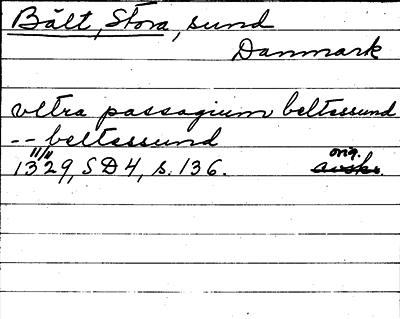 Bält, Stora, sund
Danmark
vltra passagium beltessund
-- beltessund
11/11 orig.
1329, SD4, s. 136. avskr.